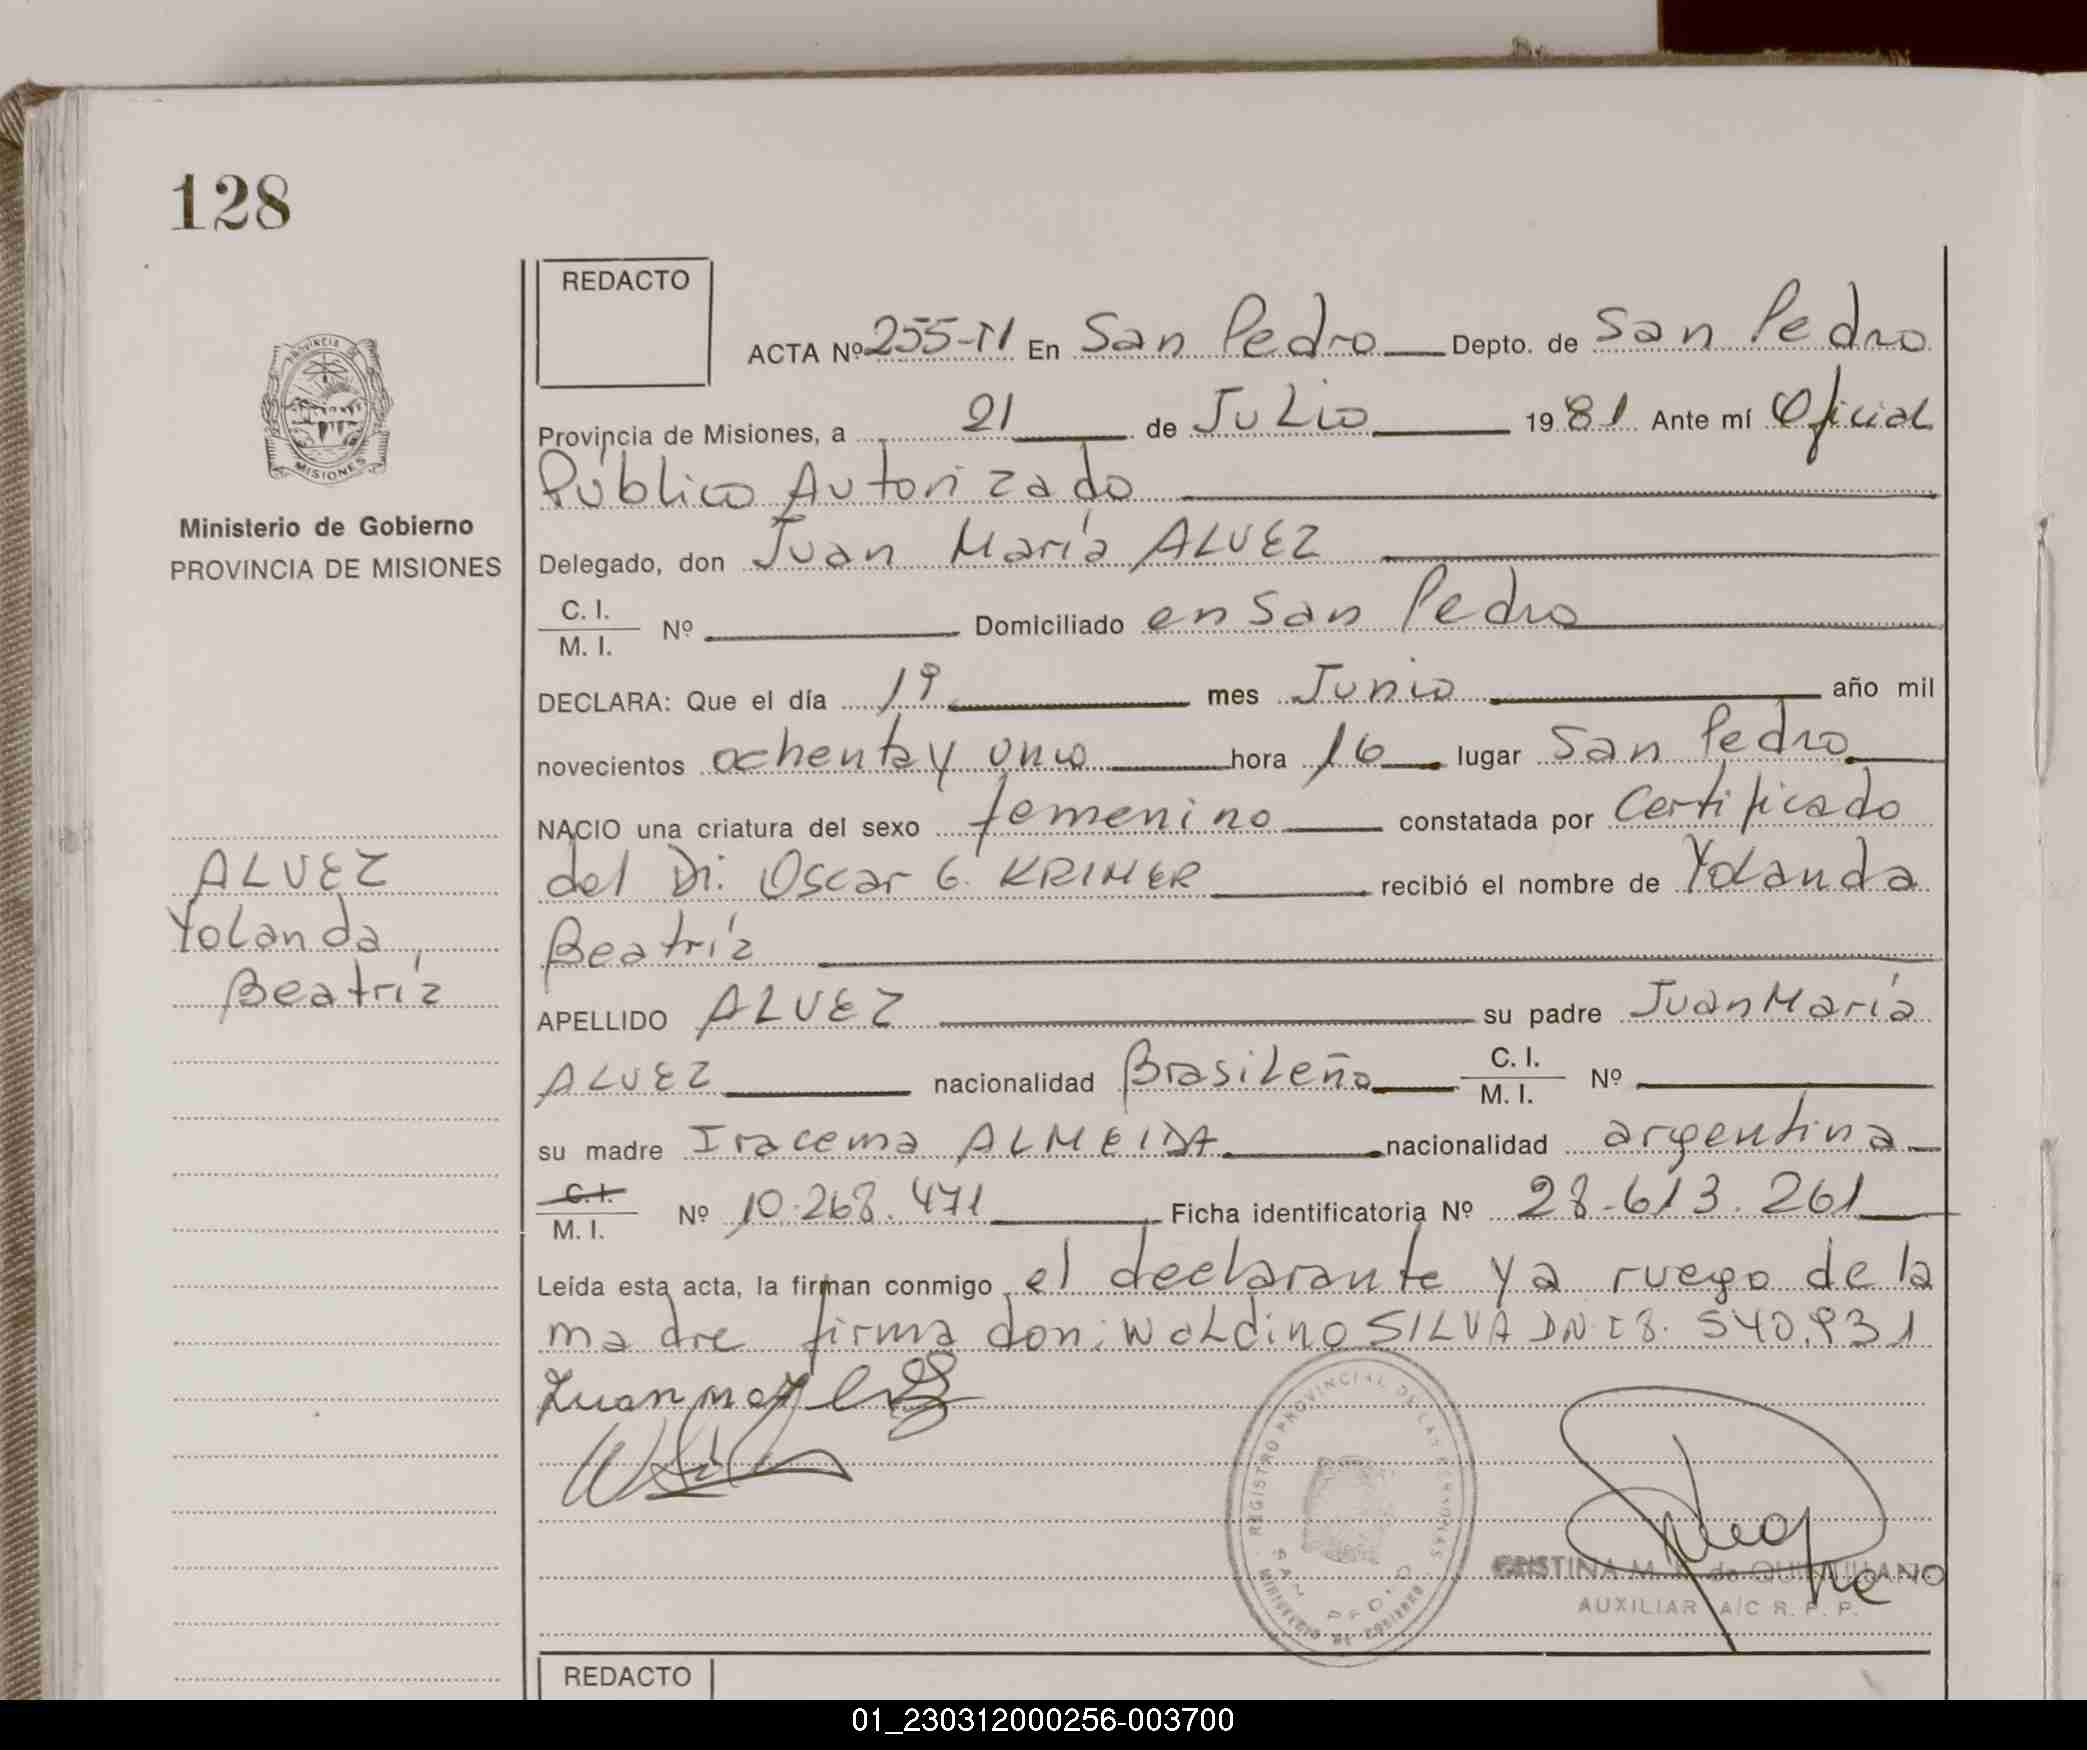 128
REDACTO
ACTA Nº 255-TI En San Pedro Depto. de San Pedro
PROVINCIA DE
MISIONES
Provincia de Misiones, a 21 de Julio 1981 Ante mí Oficial
Público Autorizado
Ministerio de Gobierno
PROVINCIA DE MISIONES
Delegado, don Juan María ALVEZ
C. I.
M. I. Nº Domiciliado en San Pedro
DECLARA: Que el día 1º mes Junio año mil
novecientos ochenta y uno hora 16 lugar San Pedro
NACIO una criatura del sexo femenino constatada por Certificado
del Dr. Oscar G. KRIMER recibió el nombre de Yolanda
Beatríz
ALVEZ
Yolanda
Beatríz
APELLIDO ALVEZ su padre Juan María
ALVEZ nacionalidad Brasileña C. I.
M. I. Nº
su madre Iracema ALMEIDA nacionalidad argentina
C. I.
M. I. Nº 10.268.471 Ficha identificatoria Nº 28.613.261
Leída esta acta, la firman conmigo el declarante y a ruego de la
madre firma don: Woldino SILVA DNI 8.540.931
REGISTRO PROVINCIAL DE LAS PERSONAS
SAN PEDRO
MINISTERIO DE GOBIERNO
CRISTINA M. de QUINTILIANO
AUXILIAR A/C R. P. P.
REDACTO
01_230312000256-003700